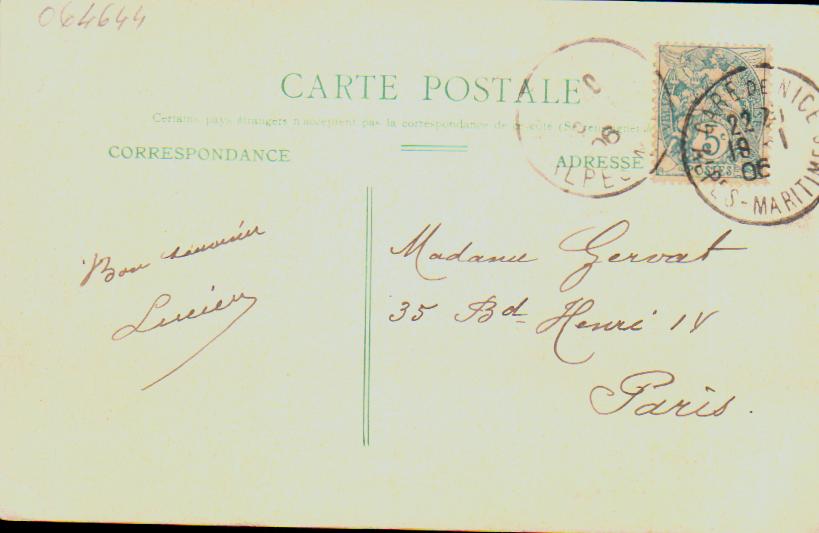 064644
CARTE POSTALE
Certains pays étrangers n'acceptent pas la correspondance de ce côté (Se renseigner
CORRESPONDANCE
ADRESSE
Bon souvenir
Lucien
Madame Gervat
35 Bd Henri IV
Paris.
5c
POSTES
GARE DE NICE
22
18 1
06
ALPES-MARITIMES
06
ALPES